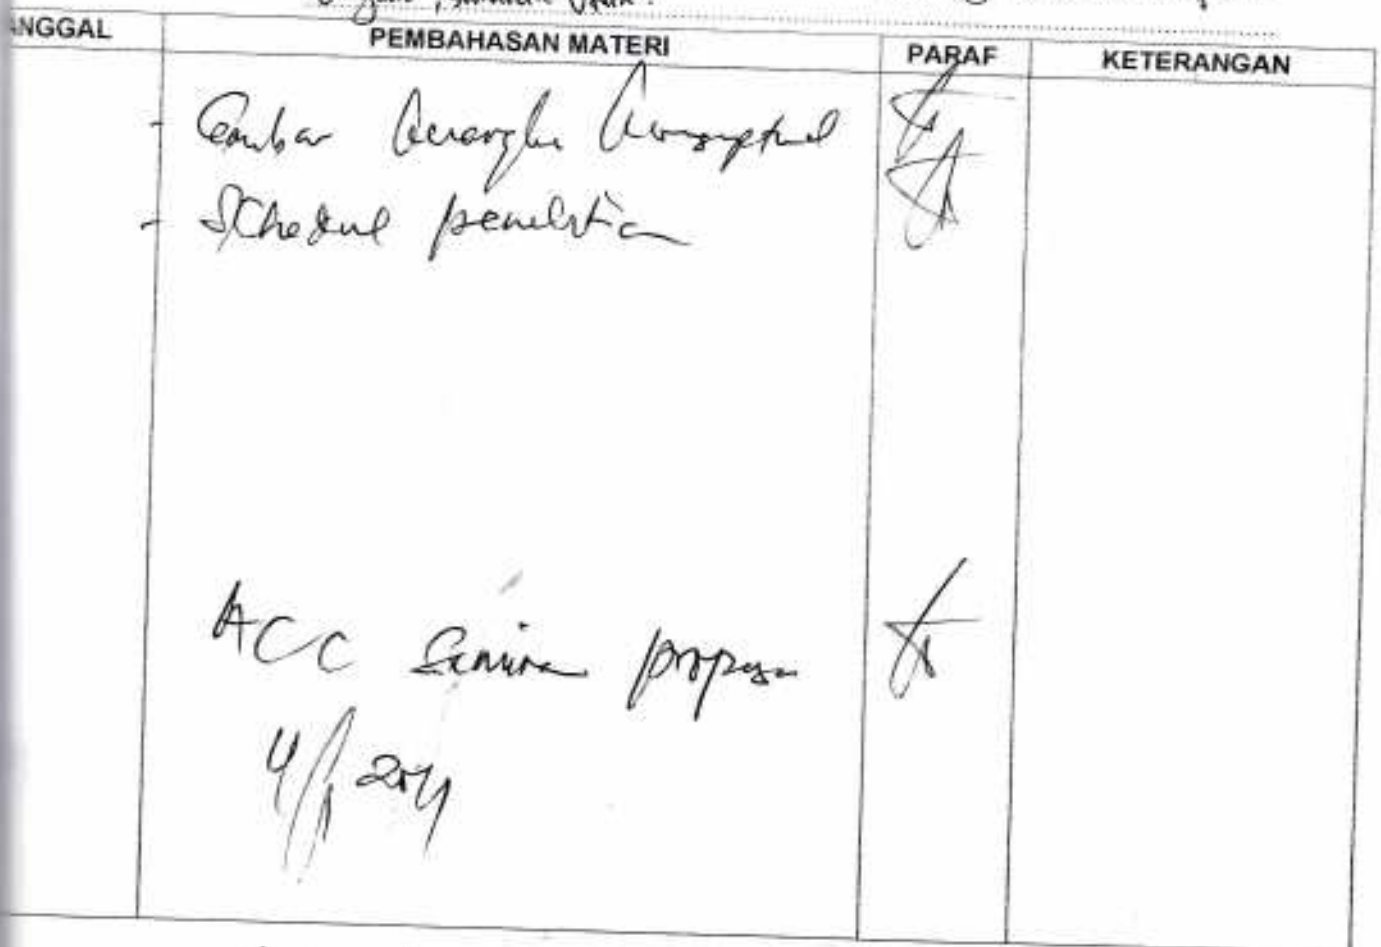 ANGGAL PEMBAHASAN MATERI PARAF KETERANGAN
- Gambar kerangka konseptual
- Schedul penelitian
ACC Seminar proposa
4/1 2011